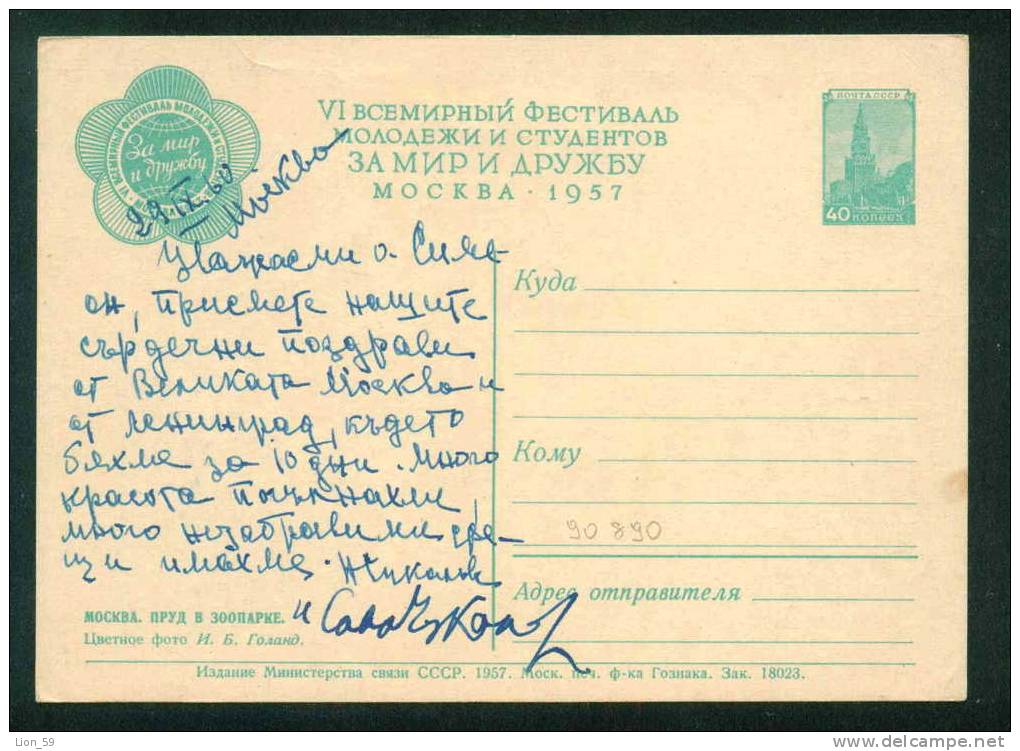 VI ВСЕМИРНЫЙ ФЕСТИВАЛЬ
МОЛОДЕЖИ И СТУДЕНТОВ
ЗА МИР И ДРУЖБУ
МОСКВА · 1957
За мир
и дружбу
ПОЧТА СССР
40 КОПЕЕК
29.IX.60
Москва
Уважаеми о. Симе-
он, приемете нашите
сърдечни поздрави
от Великата Москва и
от Ленинград, където
бяхме за 10 дни. Много
красота
много незабравими сре-
щи имахме.
и
Куда
Кому
90 890
Адрес отправителя
МОСКВА. ПРУД В ЗООПАРКЕ.
Цветное фото И. Б. Голанд.
Издание Министерства связи СССР. 1957. Моск. печ. ф-ка Гознака. Зак. 18023.
Lion_59
www.delcampe.net